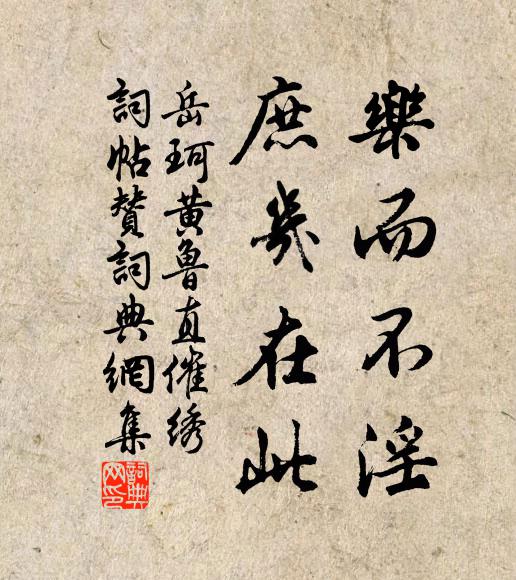 樂而不淫
庶幾在此
岳珂黄魯直催綉
詞帖贊詞典網集
詞典网印